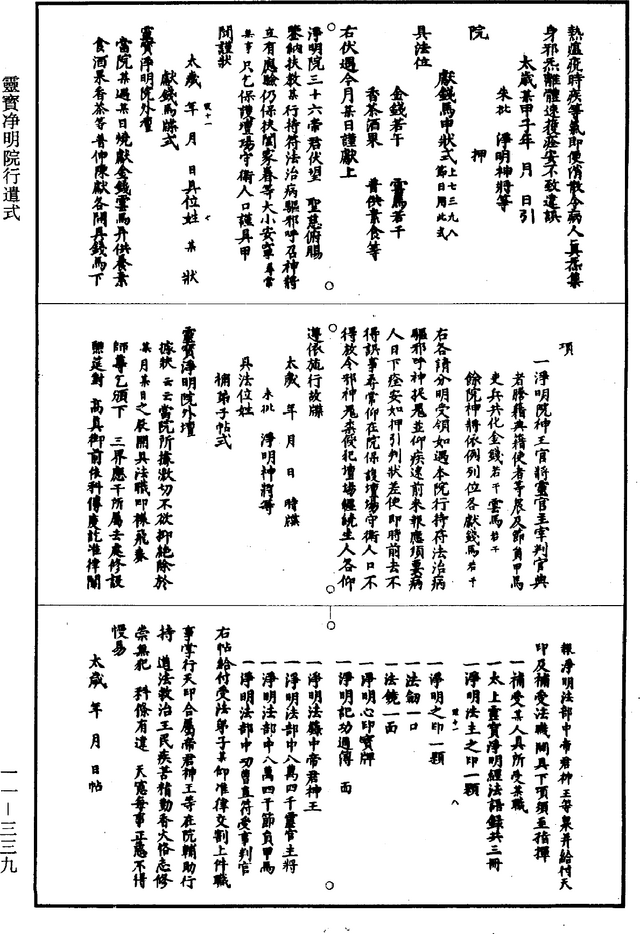 熱瘟疫時疾等氣即便消散令病人真炁集
身邪炁離體速獲痊安不致違誤
太歲某甲子年 月 日引
朱批 淨明神將等
院 押
獻錢馬申狀式上七三九八節日用此式
具法位
金錢若干 雲馬若干
香茶酒果 普供素食等
右伏遇今月某日謹獻上
淨明院三十六帝君伏望 聖慈俯賜
鑒納扶救某行持符法治病驅邪呼召神將
立有應驗仍保扶闔家眷等大小安寧尋常
某事只乞保護壇場守衛人口謹具申
聞謹狀
太歲 年 月 日具位姓 某 狀
獻錢馬牒式
靈寶淨明院外壇
當院某遇某日燒獻金錢雲馬并供養素
食酒果香茶等普伸陳獻各開具錢馬下
項
一淨明院神王官將靈官主宰判官典
者勝籍典籍使者等衆及節負甲馬
吏兵共化金錢若干雲馬若干
餘院神將依例列位各獻錢馬若干
右各請分明受領如遇本院行持符法治病
驅邪呼神扶鬼並仰疾速前來報應須要病
人日下痊安如押引判狀差使即時前去不
得誤事尋常仰在院保護壇場守衛人口不
得放令邪神鬼祟侵犯壇場纏繞生人各仰
遵依施行故牒
太歲 年 月 日 時牒
朱批 淨明神將等
具法位姓
補弟子帖式
靈寶淨明院外壇
據狀云云當院所據激切不欲抑絕除於
某月某日之辰開具法職印樣飛奏
師尊乞頒下 三界應干所屬去處修設
醮筵對 高真御前依科傳度訖准律關
報淨明法部中帝君神王等衆并給付天
印及補受法職開具下項須至指揮
一補受某人具所受某職
一太上靈寶淨明經法語錄共三冊
一淨明法主之印一顆
一淨明之印一顆
一法劒一口
一法鏡一面
一淨明心印寶牌
一淨明記功過簿 面
一淨明法籙中帝君神王
一淨明法部中八萬四千靈官主將
一淨明法部中八萬四千節負甲馬
一淨明法部中功曹直符受事判官
右帖給付受法弟子某仰准律交割上件職
事掌行天印合屬帝君神王等在院輔助行
持 道法救治王民疾苦精勤香火恪志修
崇無犯 科條有違 天憲每事正慤不得
慢易
太歲 年 月 日帖
靈寶净明院行遣式
一一－三三九